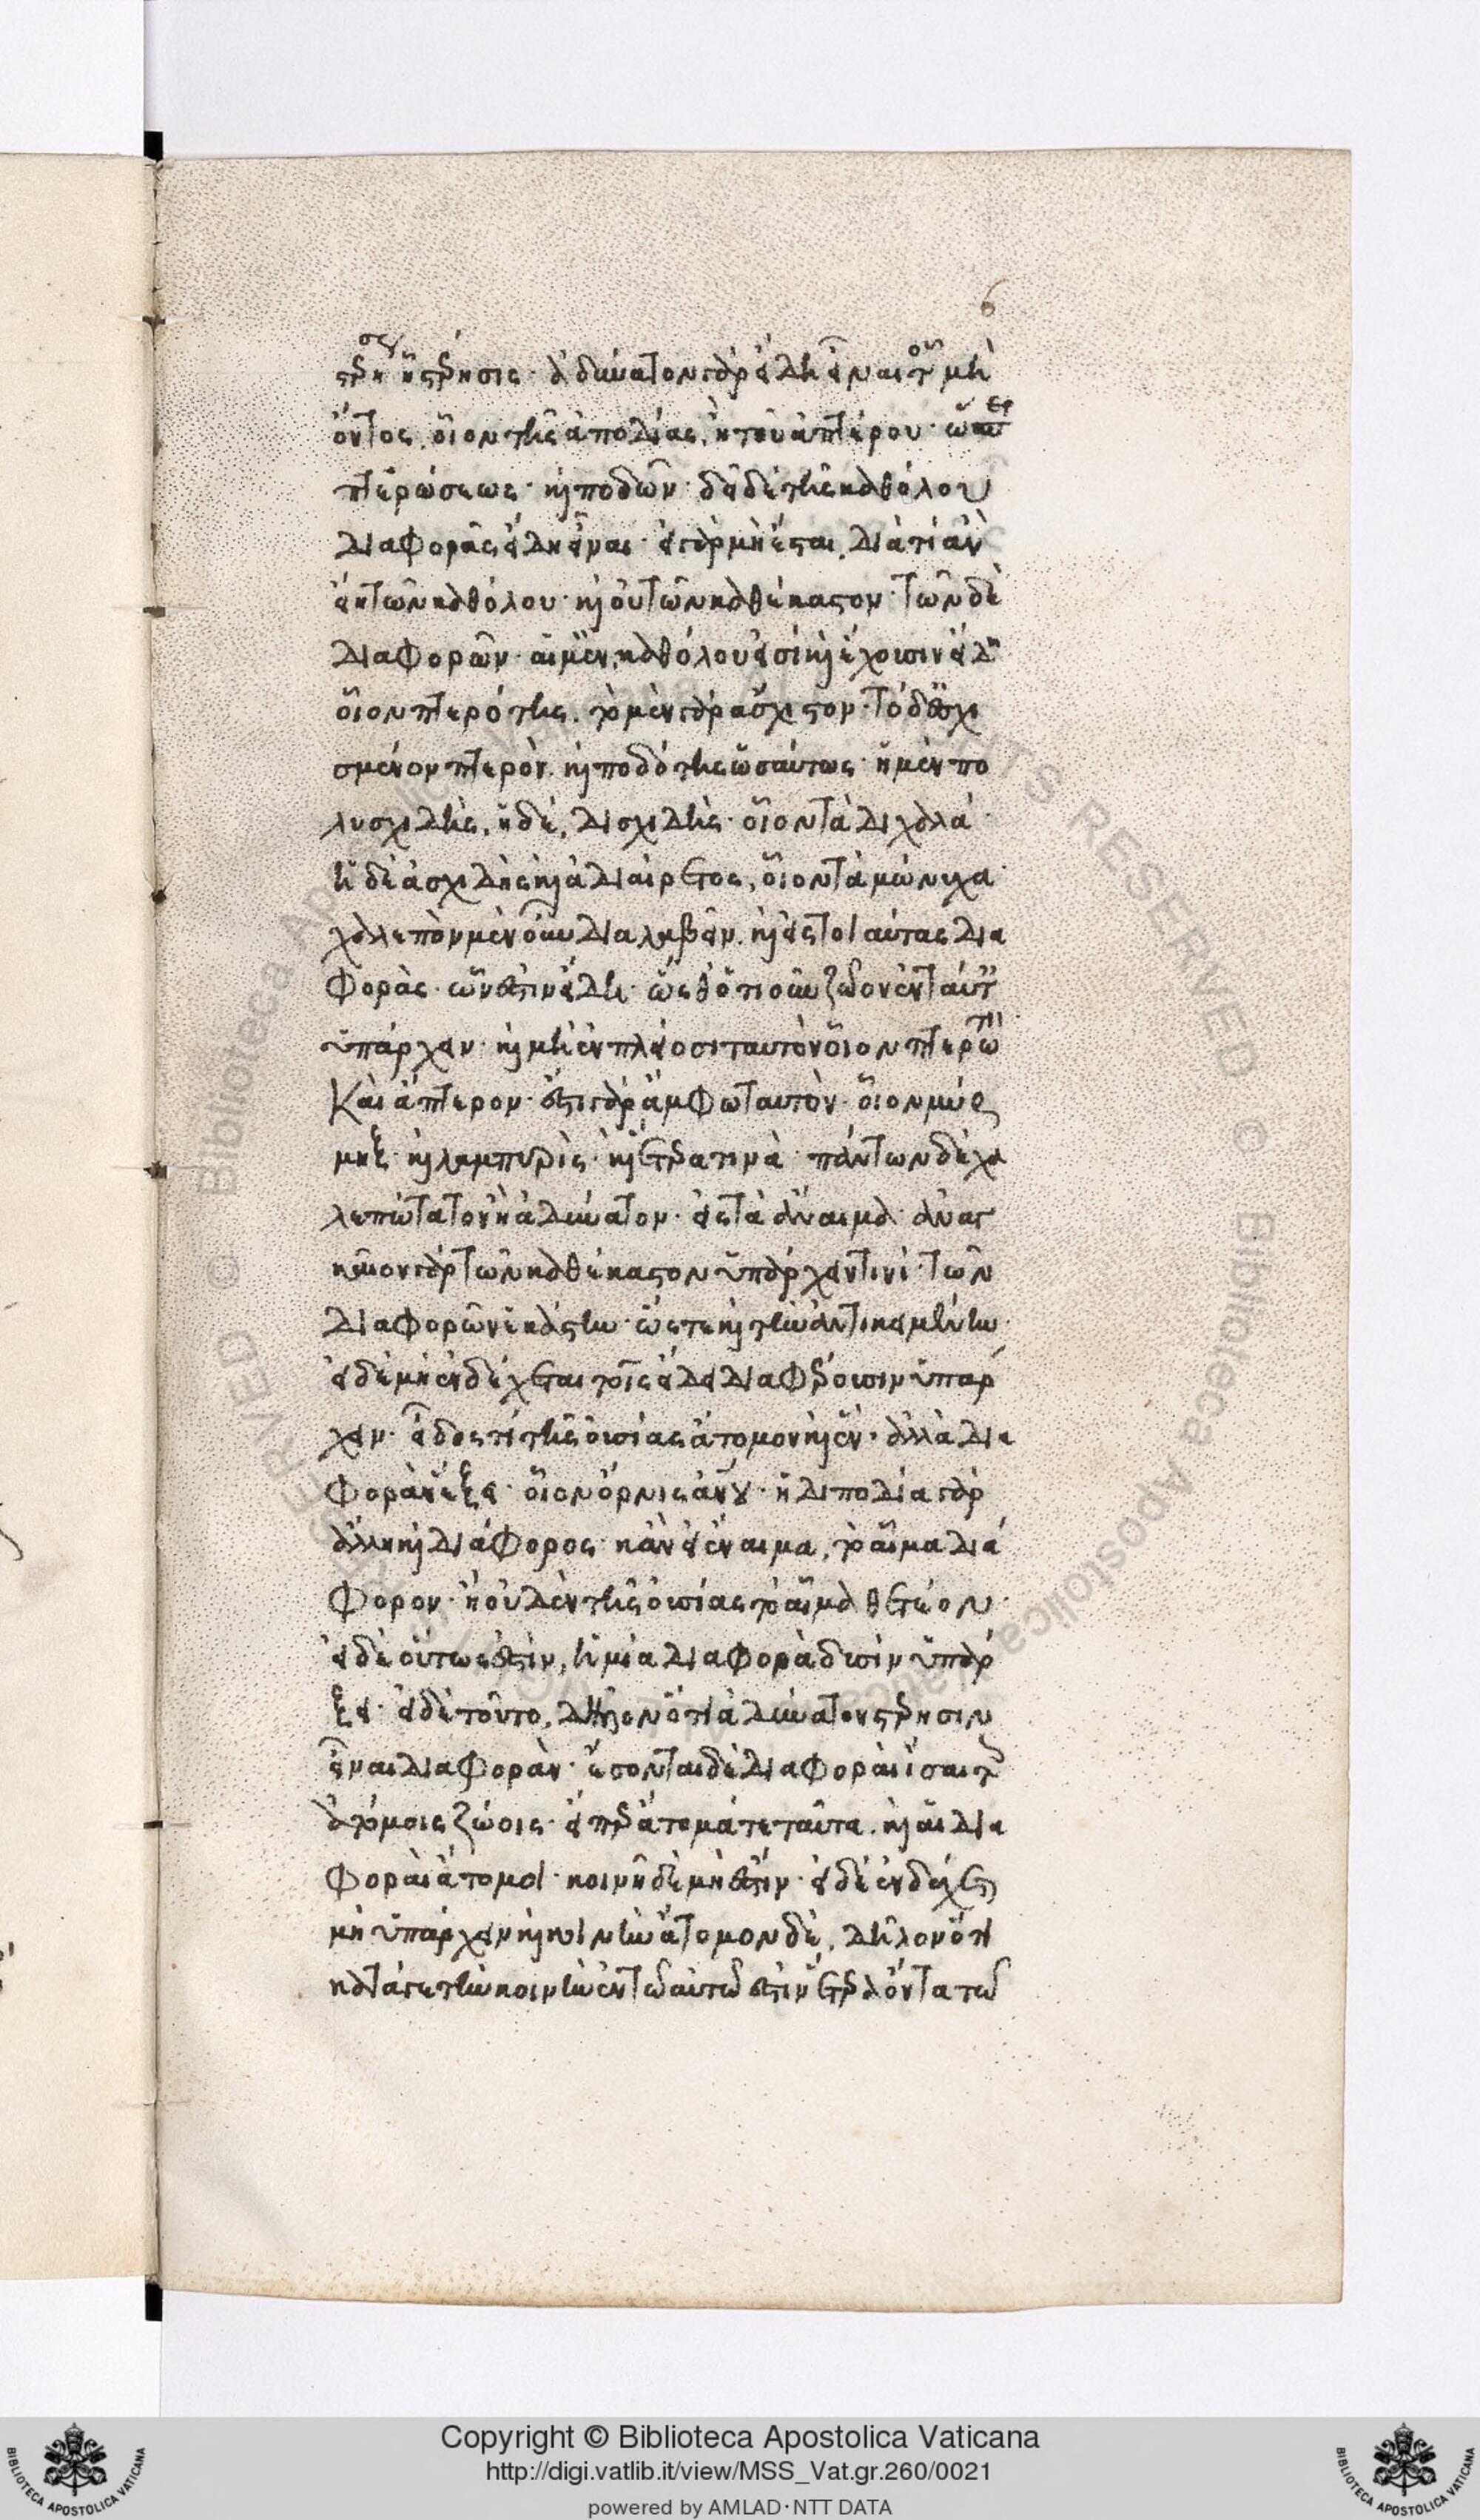 6
στερήσεως ἢ στέρησις· ἀδύνατον γὰρ εἴδη εἶναι τοῦ μὴ
ὄντος, οἷον τῆς ἀποδίας, ἢ τοῦ ἀπτέρου· ὥσπερ
πτερώσεως· καὶ ποδῶν· δεῖ δὲ τῆς καθόλου
διαφορᾶς εἴδη εἶναι· εἰ γὰρ μὴ ἔσται, διὰ τί ἂν
εἴη τῶν καθόλου· καὶ οὐ τῶν καθέκαστον· τῶν δὲ
διαφορῶν· αἱ μὲν, καθόλου εἰσὶ καὶ ἔχουσιν εἴδη
οἷον πτερότης. τὸ μὲν γὰρ ἄσχιστον· τὸ δὲ ἐσχι
σμένον πτερόν. καὶ ποδότης ὡσαύτως· ἡ μὲν πο
λυσχιδὴς, ἡ δὲ, δισχιδὴς· οἷον τὰ διχαλά·
ἡ δὲ ἀσχιδὴς καὶ ἀδιαίρετος, οἷον τὰ μώνυχα·
χαλεπὸν μὲν οὖν διαλαβεῖν. καὶ εἰς τοιαύτας δια
φοράς· ὧν ἐστιν εἴδη· ὥσθ' ὁτιοῦν ζῷον ἐν ταύτ
ὑπάρχειν· καὶ μὴ ἐν πλείοσι ταυτὸν οἷον πτερωτὸ
Καὶ ἄπτερον· ἔστι γὰρ ἄμφω ταυτὸν· οἷον μύρ
μηξ· καὶ λαμπυρὶς· καὶ ἕτερα τινὰ· πάντων δὲ χα
λεπώτατον ἢ ἀδύνατον· εἰς τὰ ἄναιμα· ἀναγ
καῖον γὰρ τῶν καθέκαστον ὑπάρχειν τινὶ· τῶν
διαφορῶν ἑκάστην· ὥστε καὶ τὴν ἀντικειμένην·
εἰ δὲ μὴ ἐνδέχεται τοῖς εἴδει διαφέρουσιν ὑπάρ
χειν· εἶδος τι τῆς οὐσίας ἄτομον καὶ ἕν· ἀλλὰ δια
φορὰν ἕξει· οἷον ὄρνις ἀνου· ἡ διποδία γὰρ
ἄλλη καὶ διάφορος· κἂν εἰ ἔναιμα, τὸ αἷμα διά
φορον· ἢ οὐδὲν τῆς οὐσίας τὸ αἷμα θετέον·
εἰ δὲ οὕτως ἐστὶν, ἡ μία διαφορὰ δυσὶν ὑπάρ
ξει· εἰ δὲ τοῦτο, δῆλον ὅτι ἀδύνατον στέρησιν
εἶναι διαφορὰν· ἔσονται δὲ διαφοραὶ ἴσαι τ
ἀτόμοις ζώοις· εἴπερ ἄτομά τε ταῦτα. καὶ αἱ δια
φοραὶ ἄτομοι· κοινὴ δὲ μὴ ἐστίν· εἰ δὲ ἐνδέχεται
μὴ ὑπάρχειν καὶ κοινὴν ἄτομον δὲ, δῆλον ὅτι
κατά γε τὴν κοινὴν ἐν τῷ αὐτῷ ἐστιν ἕτερα ὄντα τῷ
Copyright © Biblioteca Apostolica Vaticana
http://digi.vatlib.it/view/MSS_Vat.gr.260/0021
powered by AMLAD·NTT DATA